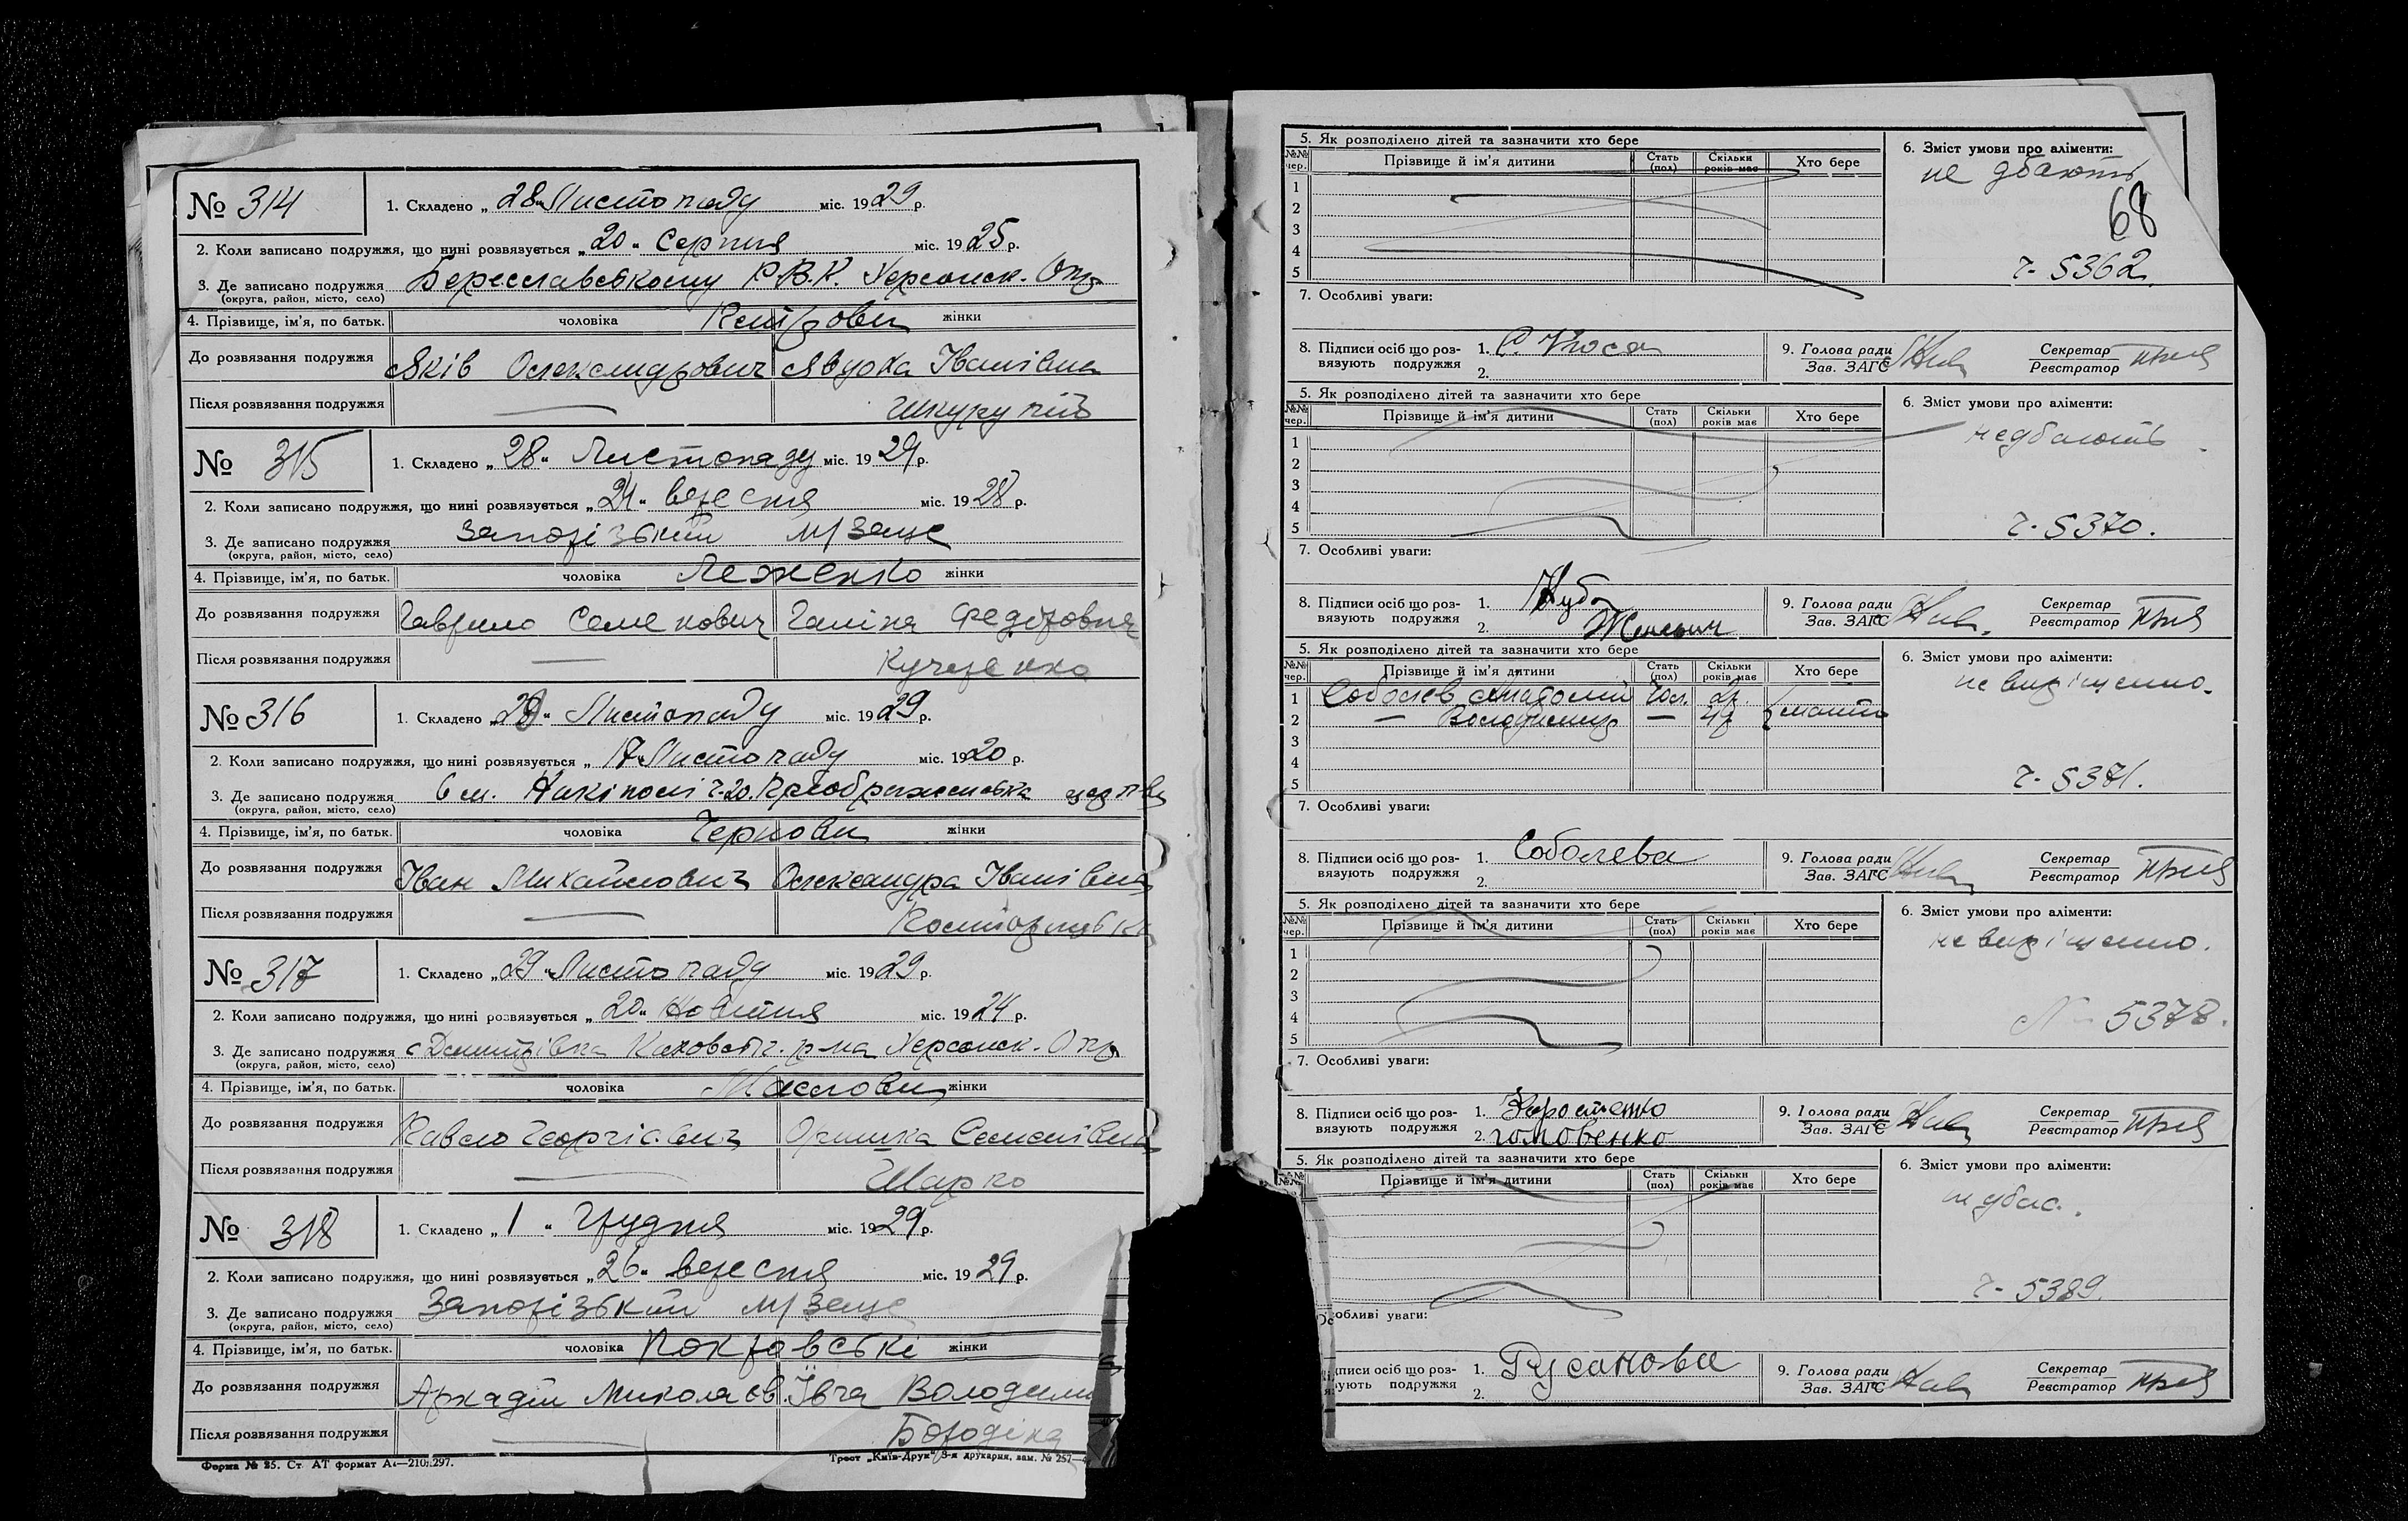 № 314
1. Складено „ 28 “ Листопаду міс. 1929 р.
2. Коли записано подружжя, що нині розвязується „ 20 “ Серпня міс. 1925 р.
3. Де записано подружжя Береславському Р.В.К. Херсонск. Окр
(округа, район, місто, село)
4. Прізвище, ім'я, по батьк. чоловіка жінки
До розвязання подружжя Яків Олександрович Явдоха Іванівна
Після розвязання подружжя — Шкурупій
№ 315
1. Складено „ 28 “ Листопаду міс. 1929 р.
2. Коли записано подружжя, що нині розвязується „ 24 “ вересня міс. 1928 р.
3. Де записано подружжя Запорізький м/Загс
(округа, район, місто, село)
4. Прізвище, ім'я, по батьк. чоловіка Леженко жінки
До розвязання подружжя Гаврило Семенович Галіна Федоровна
Після розвязання подружжя — Кучеренко
№ 316
1. Складено „ 28 “ Листопаду міс. 1929 р.
2. Коли записано подружжя, що нині розвязується „ 17 “ Листопаду міс. 1920 р.
3. Де записано подружжя в м. Нікіполі Преображенська церква
(округа, район, місто, село)
4. Прізвище, ім'я, по батьк. чоловіка Чернови жінки
До розвязання подружжя Іван Михайлович Олександра Іванівна
Після розвязання подружжя —
№ 317
1. Складено „ 29 “ Листопаду міс. 1929 р.
2. Коли записано подружжя, що нині розвязується „ 20 “ Жовтня міс. 1924 р.
3. Де записано подружжя с Дмитрівка Каховськ. р-на Херсонск. Окр
(округа, район, місто, село)
4. Прізвище, ім'я, по батьк. чоловіка Маслови жінки
До розвязання подружжя Павло Георгієвич Оришка Семенівна
Після розвязання подружжя — Шарко
№ 318
1. Складено „ 1 “ Грудня міс. 1929 р.
2. Коли записано подружжя, що нині розвязується „ 26 “ вересня міс. 1929 р.
3. Де записано подружжя Запорізький м/Загс
(округа, район, місто, село)
4. Прізвище, ім'я, по батьк. чоловіка Покровські жінки
До розвязання подружжя Аркадій Миколаєв. Ївга Володими
Після розвязання подружжя — Бородіна
Форма № 25. Ст. АТ формат А4—210:297.
Трест „Київ-Друк“, 3-я друкарня, зам. № 257—
5. Як розподілено дітей та зазначити хто бере
6. Зміст умови про аліменти:
№№ чер. Прізвище й ім'я дитини Стать (пол) Скільки років має Хто бере
не дбають
68
1
2
3
4
5
ч- 5362.
7. Особливі уваги:
8. Підписи осіб що розвязують подружжя 1.
2.
9. Голова ради
Зав. ЗАГС
Секретар
Реєстратор
5. Як розподілено дітей та зазначити хто бере
6. Зміст умови про аліменти:
№№ чер. Прізвище й ім'я дитини Стать (пол) Скільки років має Хто бере
не дбають
1
2
3
4
5
ч- 5370.
7. Особливі уваги:
8. Підписи осіб що розвязують подружжя 1.
2.
9. Голова ради
Зав. ЗАГС
Секретар
Реєстратор
5. Як розподілено дітей та зазначити хто бере
6. Зміст умови про аліменти:
№№ чер. Прізвище й ім'я дитини Стать (пол) Скільки років має Хто бере
не вирішено.
1 Соболєв Анатолій чол. 2р.
2 — Володимир — 4р } мати
3
4
5
ч- 5371.
7. Особливі уваги:
8. Підписи осіб що розвязують подружжя 1. Соболева
2.
9. Голова ради
Зав. ЗАГС
Секретар
Реєстратор
5. Як розподілено дітей та зазначити хто бере
6. Зміст умови про аліменти:
№№ чер. Прізвище й ім'я дитини Стать (пол) Скільки років має Хто бере
не вирішено.
1
2
3
4
5
№ 5378.
7. Особливі уваги:
8. Підписи осіб що розвязують подружжя 1. Коростенко
2. головенко
9. Голова ради
Зав. ЗАГС
Секретар
Реєстратор
5. Як розподілено дітей та зазначити хто бере
6. Зміст умови про аліменти:
№№ Прізвище й ім'я дитини Стать (пол) Скільки років має Хто бере
ч- 5389.
особливі уваги:
дписи осіб що роз-
зують подружжя 1. Русанова
2.
9. Голова ради
Зав. ЗАГС
Секретар
Реєстратор